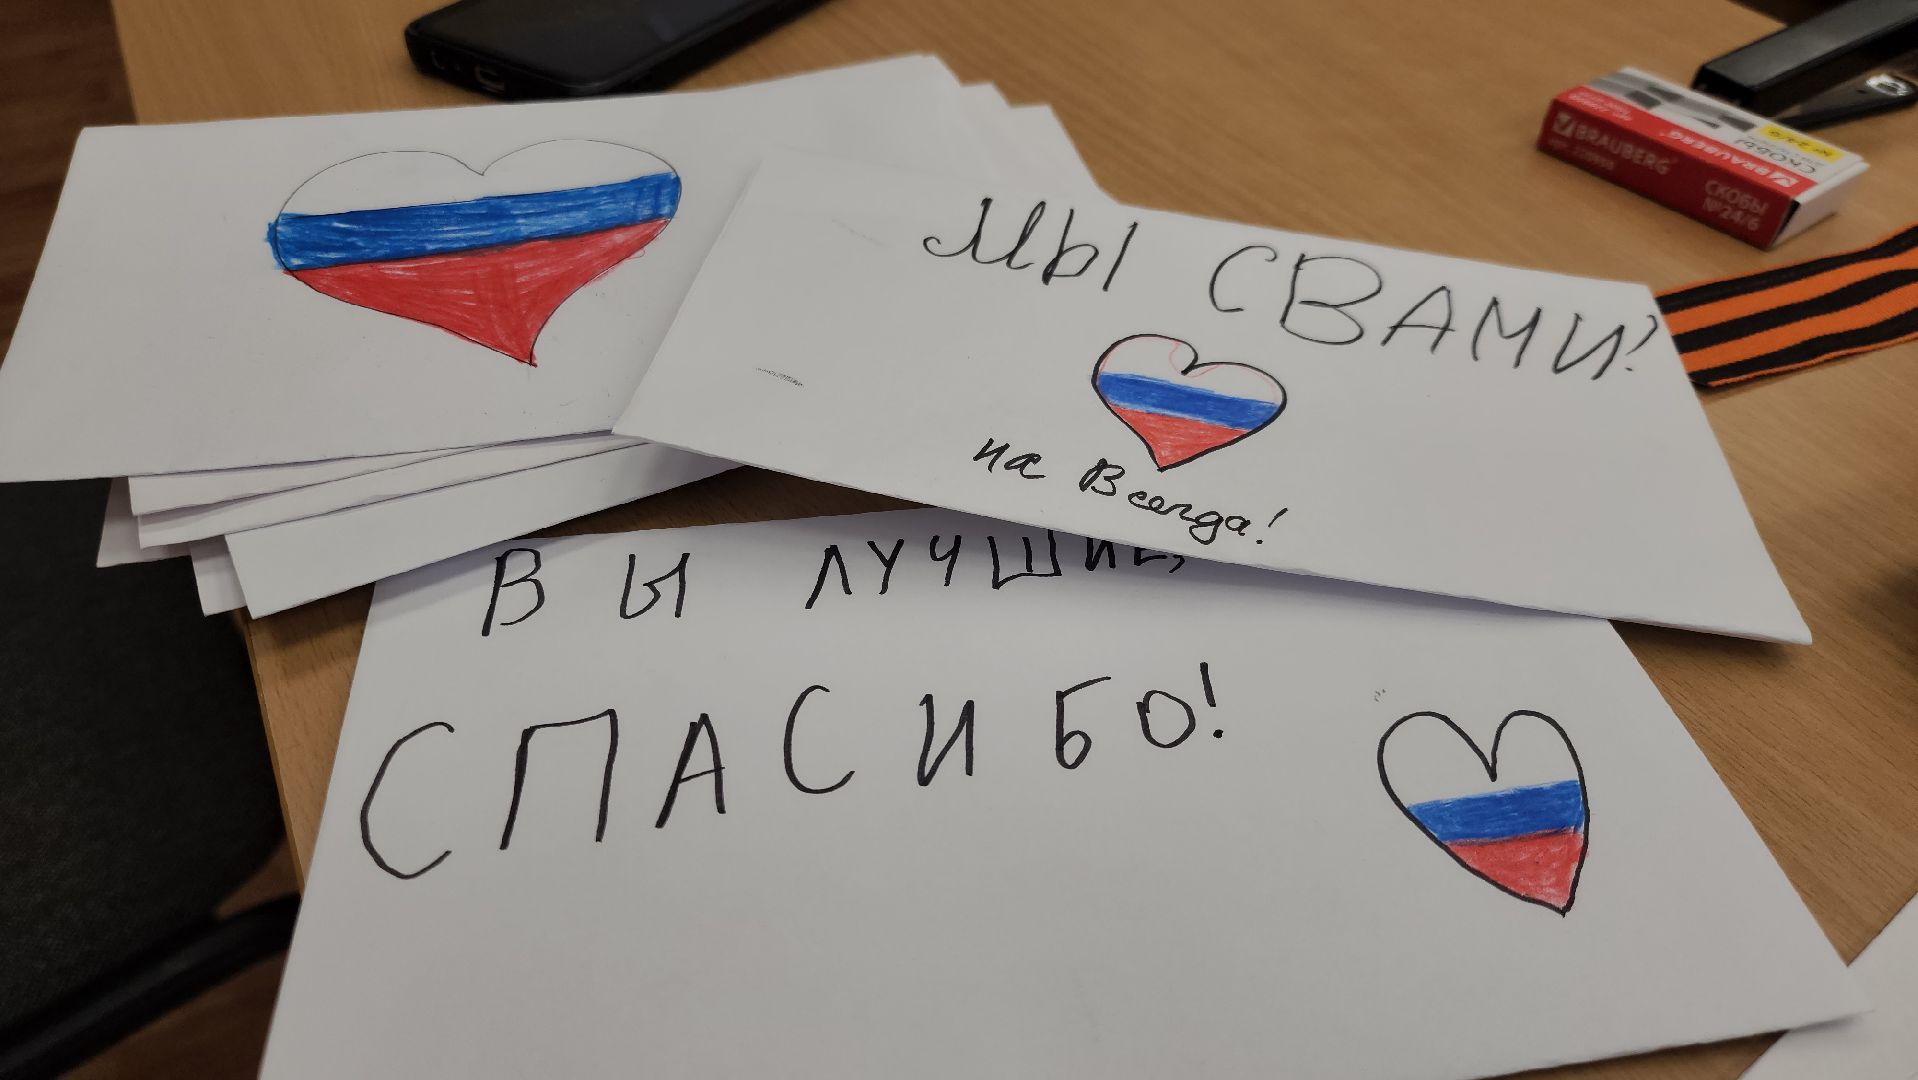 МЫ СВАМИ!
на Всегда!
ВЫ ЛУЧШИЕ,
СПАСИБО!
BRAUBERG
СКОБЫ
№24/6
BRAUBERG
СКОБЫ
№ 24/6